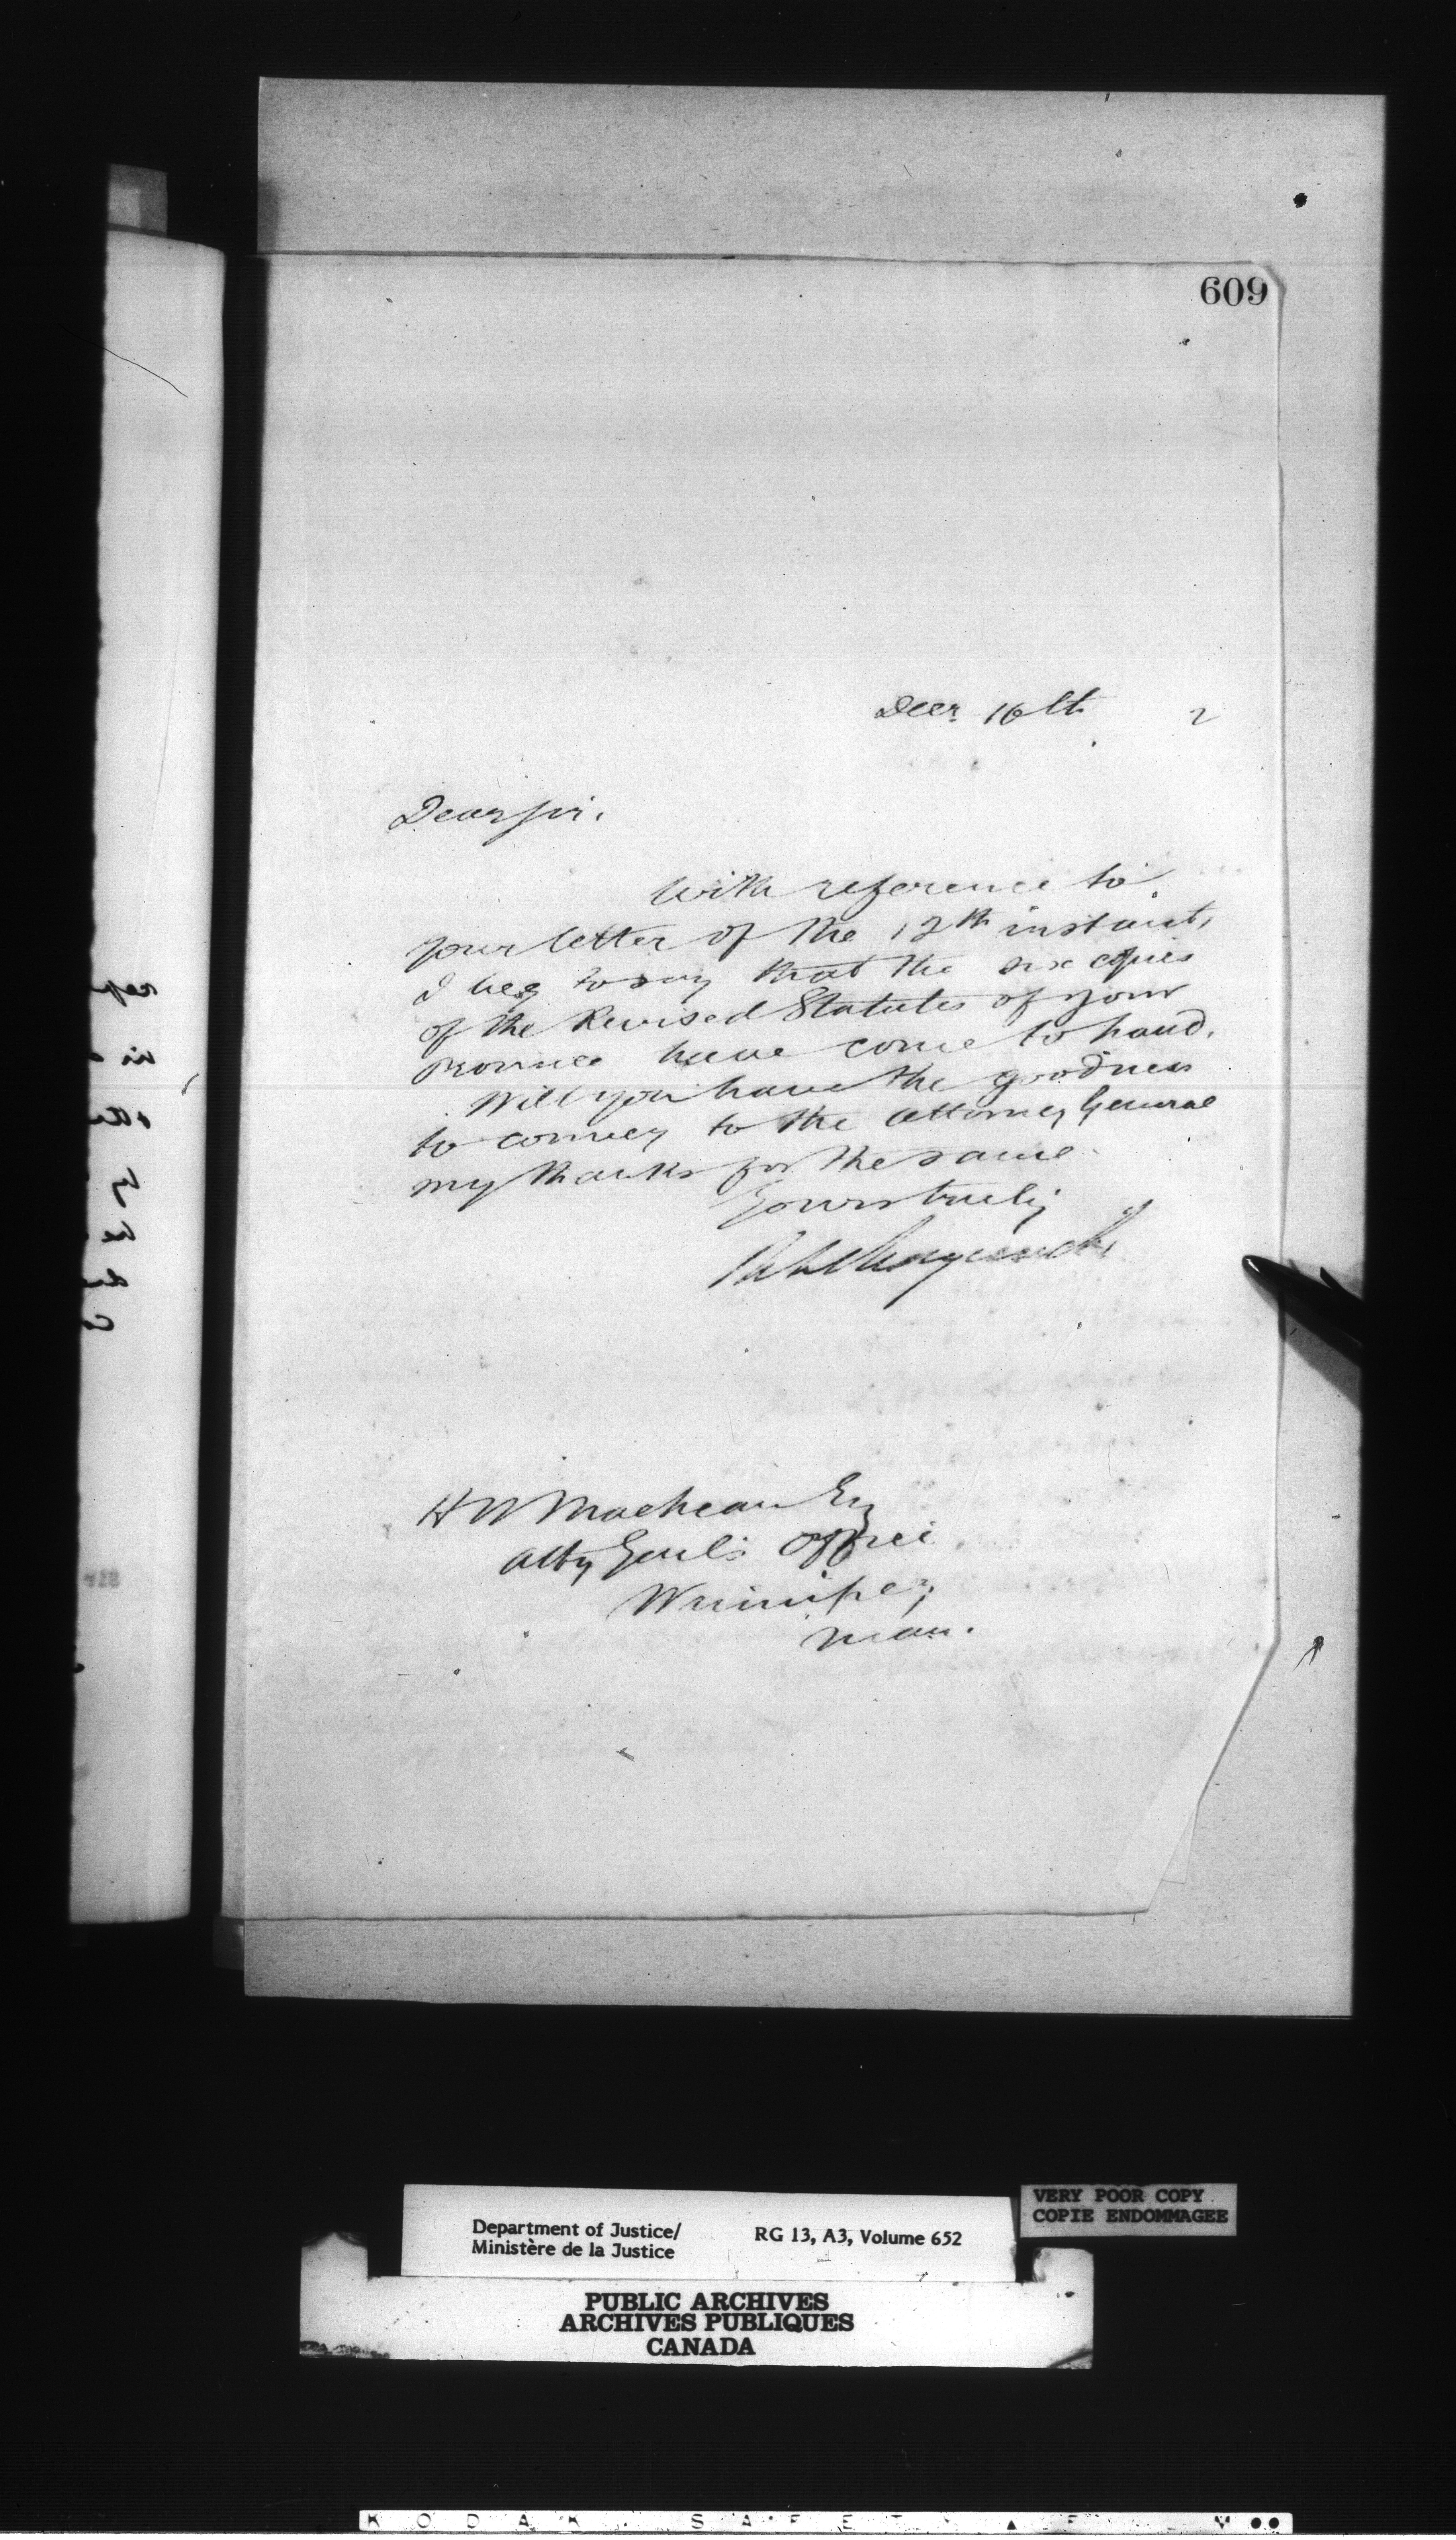 609
Decr. 16th 2
Dear Sir.
With reference to
your letter of the 12th instant,
I beg to say that the six copies
of the Revised Statutes of your
Province have come to hand.
Will you have the goodness
to convey to the Attorney General
my thanks for the same.
Yours truly
H W
Atty Genl's Office
Winnipeg
Man.
Department of Justice/ RG 13, A3, Volume 652
Ministère de la Justice
VERY POOR COPY
COPIE ENDOMMAGEE
PUBLIC ARCHIVES
ARCHIVES PUBLIQUES
CANADA